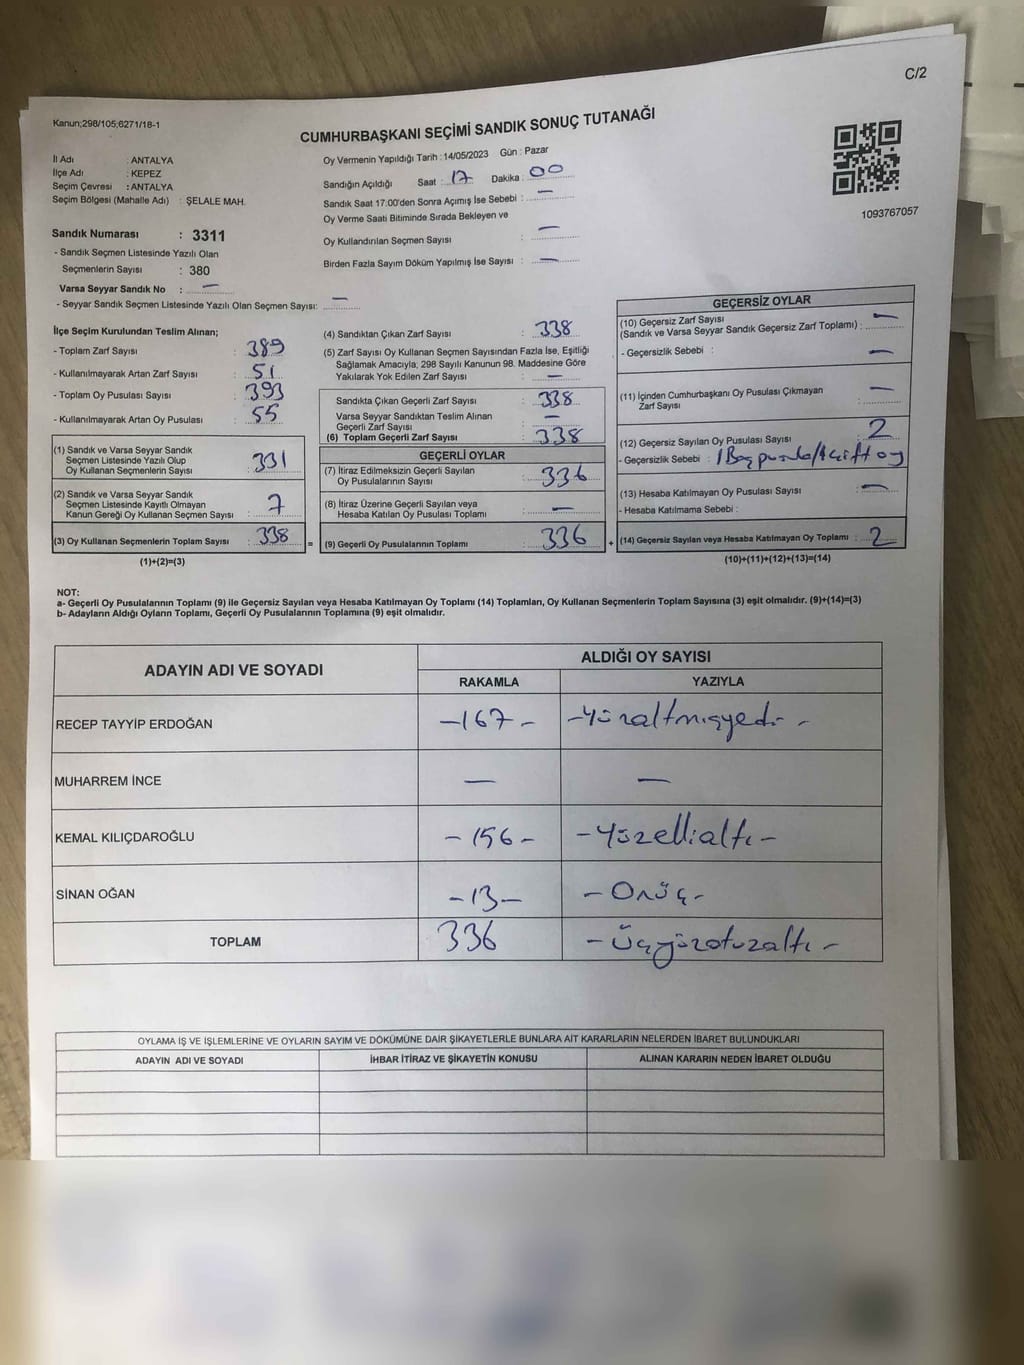 C/2
Kanun;298/105;6271/18-1
CUMHURBAŞKANI SEÇİMİ SANDIK SONUÇ TUTANAĞI
İl Adı : ANTALYA
İlçe Adı : KEPEZ
Seçim Çevresi : ANTALYA
Seçim Bölgesi (Mahalle Adı) : ŞELALE MAH.
Sandık Numarası : 3311
- Sandık Seçmen Listesinde Yazılı Olan
Seçmenlerin Sayısı : 380
Varsa Seyyar Sandık No : —
- Seyyar Sandık Seçmen Listesinde Yazılı Olan Seçmen Sayısı: —
Oy Vermenin Yapıldığı Tarih : 14/05/2023 Gün : Pazar
Sandığın Açıldığı Saat : 17 Dakika : 00
Sandık Saat 17:00'den Sonra Açımış İse Sebebi : —
Oy Verme Saati Bitiminde Sırada Bekleyen ve
Oy Kullandırılan Seçmen Sayısı : —
Birden Fazla Sayım Döküm Yapılmış İse Sayısı : —
1093767057
İlçe Seçim Kurulundan Teslim Alınan;
- Toplam Zarf Sayısı : 389
- Kullanılmayarak Artan Zarf Sayısı : 51
- Toplam Oy Pusulası Sayısı : 393
- Kullanılmayarak Artan Oy Pusulası : 55
(1) Sandık ve Varsa Seyyar Sandık
Seçmen Listesinde Yazılı Olup
Oy Kullanan Seçmenlerin Sayısı : 331
(2) Sandık ve Varsa Seyyar Sandık
Seçmen Listesinde Kayıtlı Olmayan
Kanun Gereği Oy Kullanan Seçmen Sayısı : 7
(3) Oy Kullanan Seçmenlerin Toplam Sayısı : 338 =
(1)+(2)=(3)
(4) Sandıktan Çıkan Zarf Sayısı : 338
(5) Zarf Sayısı Oy Kullanan Seçmen Sayısından Fazla İse, Eşitliği
Sağlamak Amacıyla; 298 Sayılı Kanunun 98. Maddesine Göre
Yakılarak Yok Edilen Zarf Sayısı : —
Sandıkta Çıkan Geçerli Zarf Sayısı : 338
Varsa Seyyar Sandıktan Teslim Alınan
Geçerli Zarf Sayısı : —
(6) Toplam Geçerli Zarf Sayısı : 338
GEÇERLİ OYLAR
(7) İtiraz Edilmeksizin Geçerli Sayılan
Oy Pusulalarının Sayısı : 336
(8) İtiraz Üzerine Geçerli Sayılan veya
Hesaba Katılan Oy Pusulası Toplamı : —
(9) Geçerli Oy Pusulalarının Toplamı : 336 +
GEÇERSİZ OYLAR
(10) Geçersiz Zarf Sayısı
(Sandık ve Varsa Seyyar Sandık Geçersiz Zarf Toplamı) : —
- Geçersizlik Sebebi : —
(11) İçinden Cumhurbaşkanı Oy Pusulası Çıkmayan
Zarf Sayısı : —
(12) Geçersiz Sayılan Oy Pusulası Sayısı : 2
- Geçersizlik Sebebi : 1 Boş pusula / 1 çift oy
(13) Hesaba Katılmayan Oy Pusulası Sayısı : —
- Hesaba Katılmama Sebebi :
(14) Geçersiz Sayılan veya Hesaba Katılmayan Oy Toplamı : 2
(10)+(11)+(12)+(13)=(14)
NOT:
a- Geçerli Oy Pusulalarının Toplamı (9) ile Geçersiz Sayılan veya Hesaba Katılmayan Oy Toplamı (14) Toplamları, Oy Kullanan Seçmenlerin Toplam Sayısına (3) eşit olmalıdır. (9)+(14)=(3)
b- Adayların Aldığı Oyların Toplamı, Geçerli Oy Pusulalarının Toplamına (9) eşit olmalıdır.
ADAYIN ADI VE SOYADI
ALDIĞI OY SAYISI
RAKAMLA YAZIYLA
RECEP TAYYİP ERDOĞAN -167- -Yüzaltmışyedi-
MUHARREM İNCE — —
KEMAL KILIÇDAROĞLU -156- -Yüzellialtı-
SİNAN OĞAN -13- -Onüç-
TOPLAM 336 -Üçyüzotuzaltı-
OYLAMA İŞ VE İŞLEMLERİNE VE OYLARIN SAYIM VE DÖKÜMÜNE DAİR ŞİKAYETLERLE BUNLARA AİT KARARLARIN NELERDEN İBARET BULUNDUKLARI
ADAYIN ADI VE SOYADI İHBAR İTİRAZ VE ŞİKAYETİN KONUSU ALINAN KARARIN NEDEN İBARET OLDUĞU